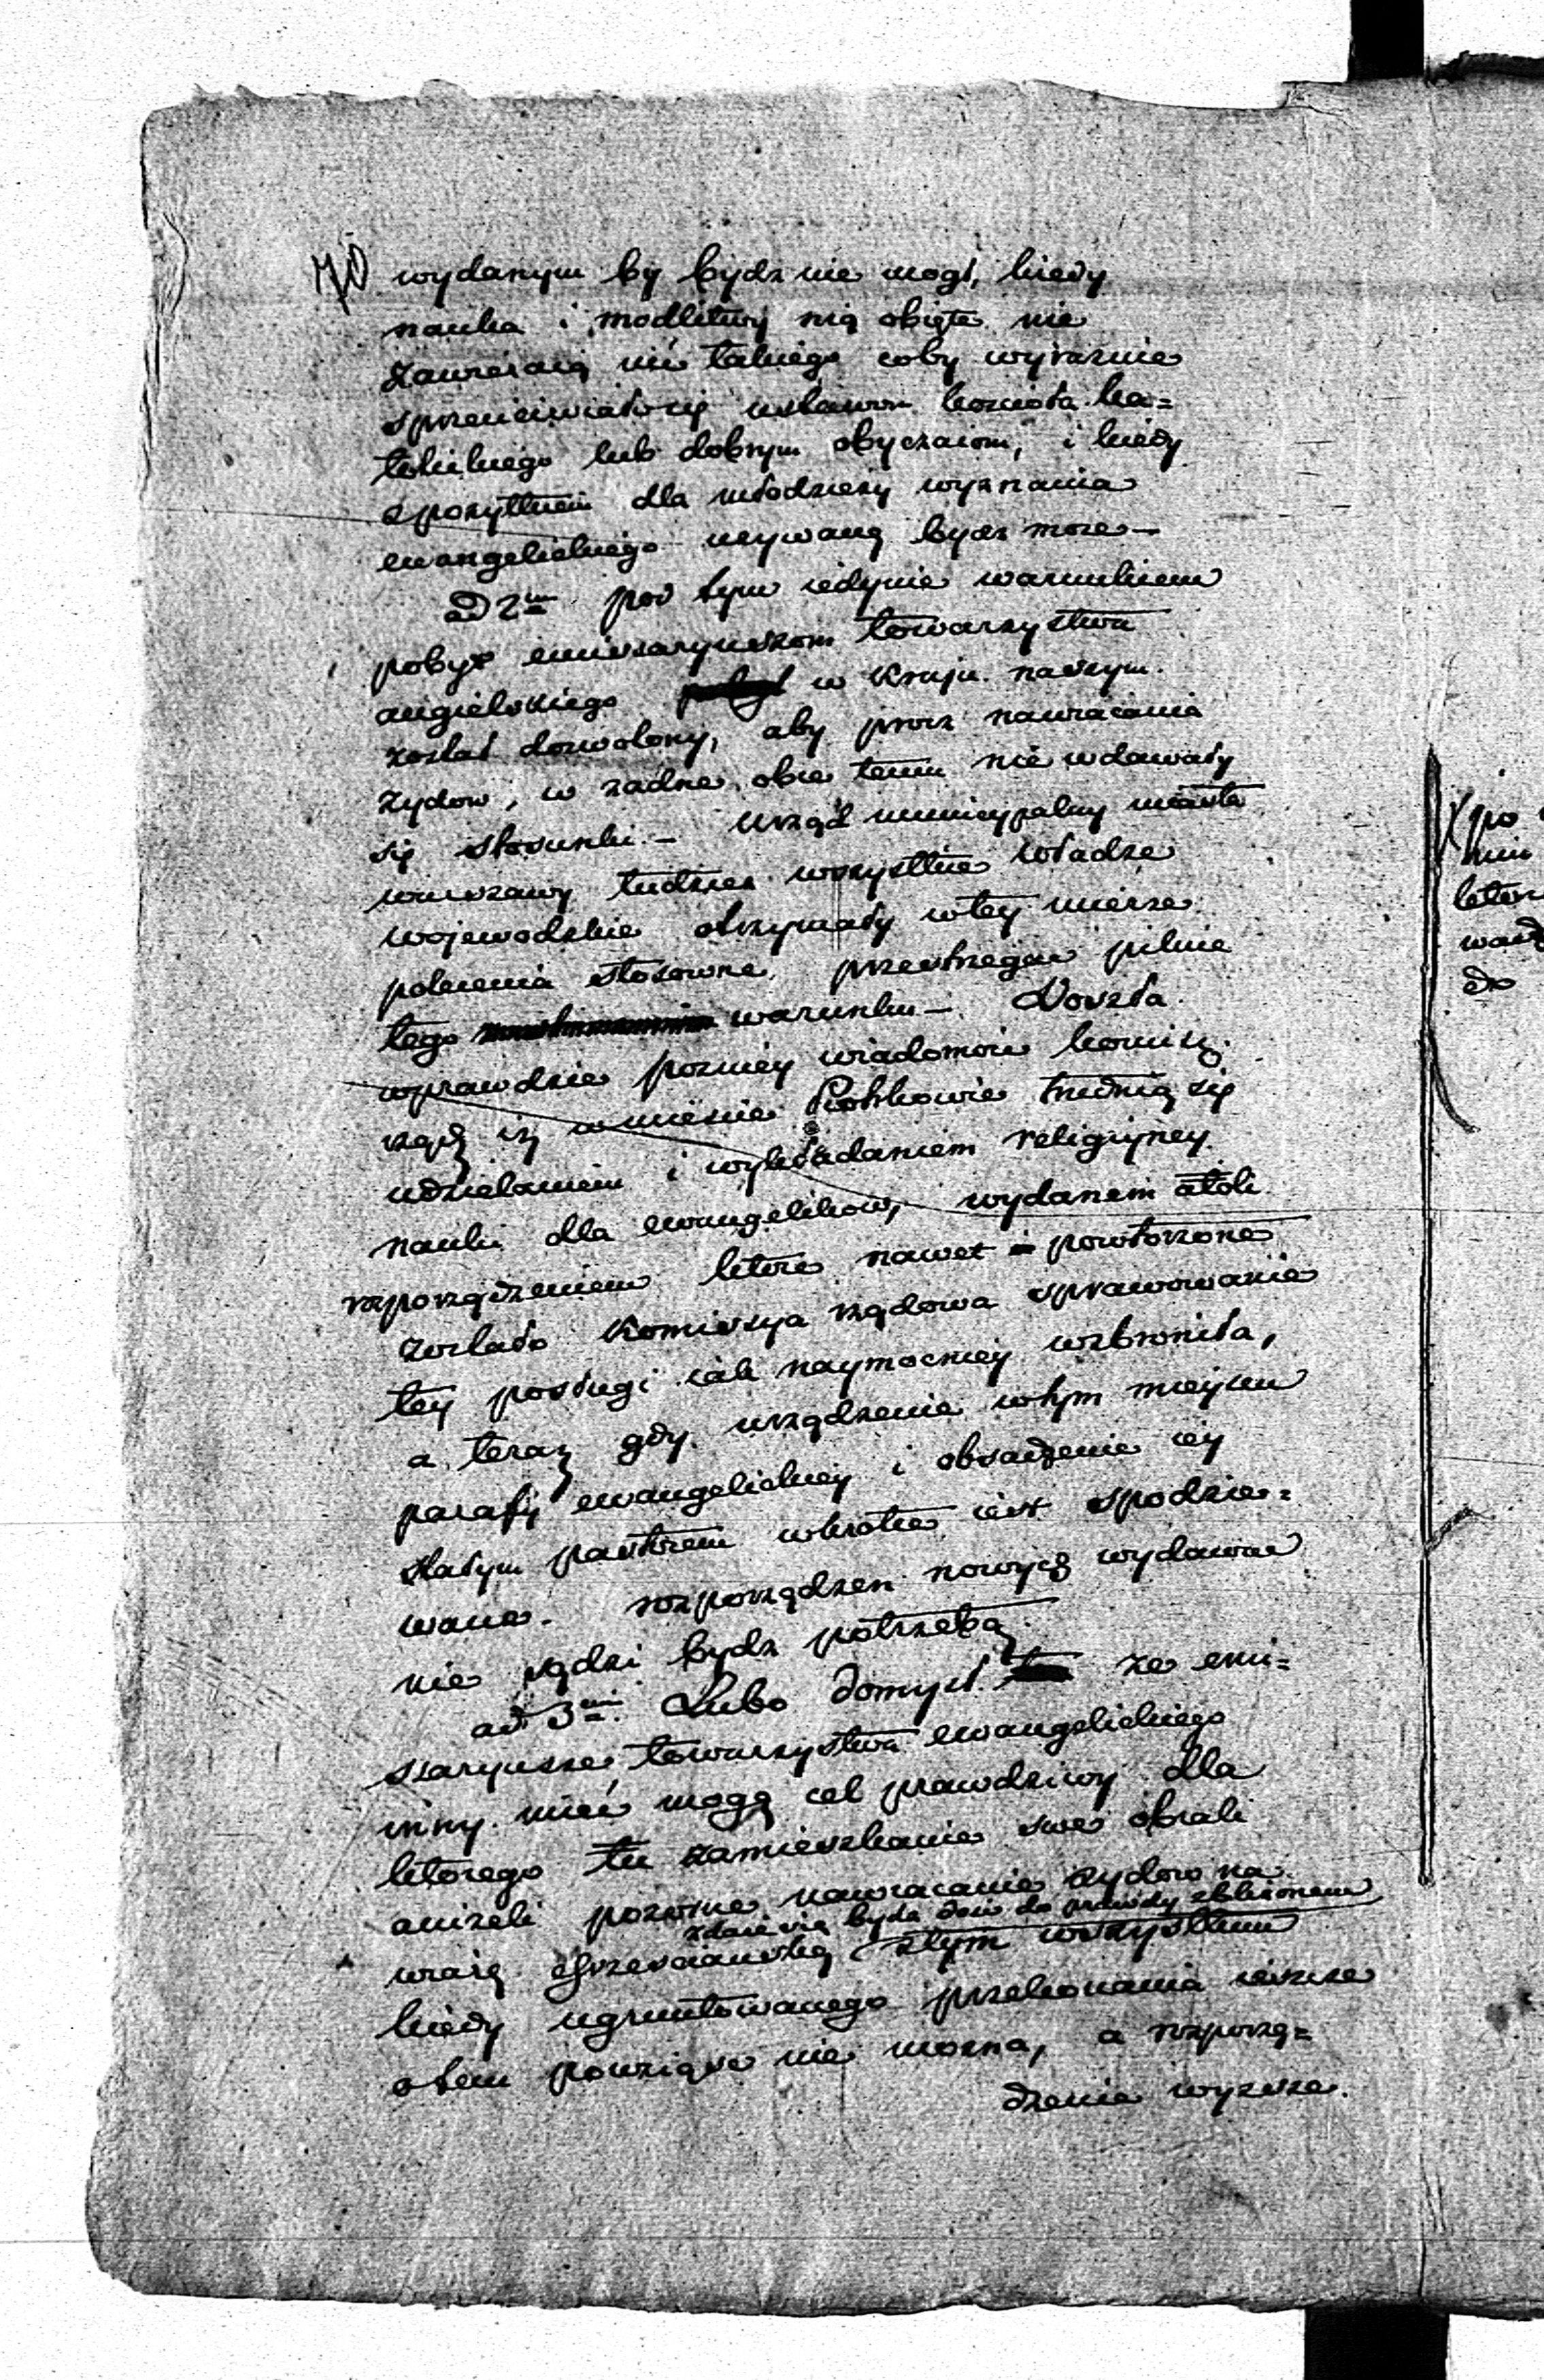 70 wydanym by bydz nie mogł, kiedy
nauka i modlitwy nią obięte nie
zawieraią nic takiego coby wyraznie
sprzeciwiało się ustawom kościoła ka=
tolickiego lub dobrym obyczaiom, i kiedy
z pożytkiem dla młodzieży wyznania
ewangelickiego używaną bydz może —
ad 2um pod tym iedynie warunkiem
pobyt emissaryuszom towarzystwa
angielskiego w kraju naszym
został dozwolony, aby prócz nawracania
żydow, w żadne obce temu nie wdawały
się stosunki. — Urząd municypalny miasta
warszawy tudzież wszystkie władze
wojewodzkie otrzymały w tey mierze
polecenia stosowne przestrzegać pilnie
tego warunku —. Doszła
wprawdzie pozniey wiadomość kommissyi
rządę iż w mieście Piotrkowie trudnią się
udzielaniem i wykładaniem religiyney
nauki dla ewangelikow, wydanem atoli
rozporządzeniem które nawet powtorzone
zostało Komissya rządowa sprawowanie
tey posługi iak naymocniey wzbroniła,
a teraz gdy urządzenie w tym mieyscu
parafij ewangelickiey i obsadzenie iey
stałym pasterzem wkrotce iest spodzie=
wane. rozporządzen nowych wydawać
nie sądzi bydz potrzebą.
ad 3um. Lubo domysł że emi=
ssaryusze towarzystwa ewangelickiego
inny mieć mogą cel prawdziwy dla
ktorego tu zamieszkanie swe obrali
aniżeli pozorne nawracanie żydow na
zdaie się bydź dow do prawdy zbliżonem
wiarę chrześciańską z tym wszystkim
kiedy ugruntowanego przekonania ieszcze
o tem powziąść nie można, a rozporzą=
dzenia wyższe.
do